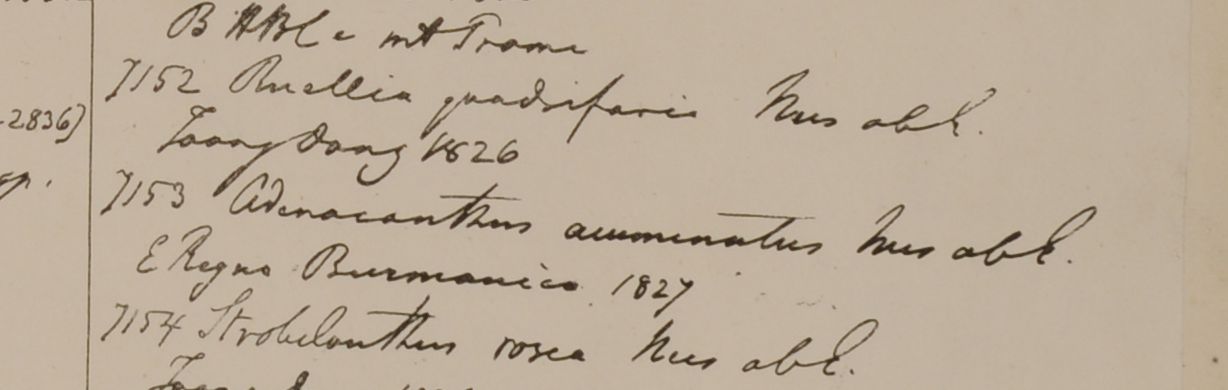 B HBC e mt Prome
7152 Ruellia quadrifaria Nees ab E.
Toong Dong 1826
2836)
7153 Adenacanthus acuminatus Nees ab E.
E Regno Burmanico 1827
7154 Strobilanthus rosea Nees ab E.